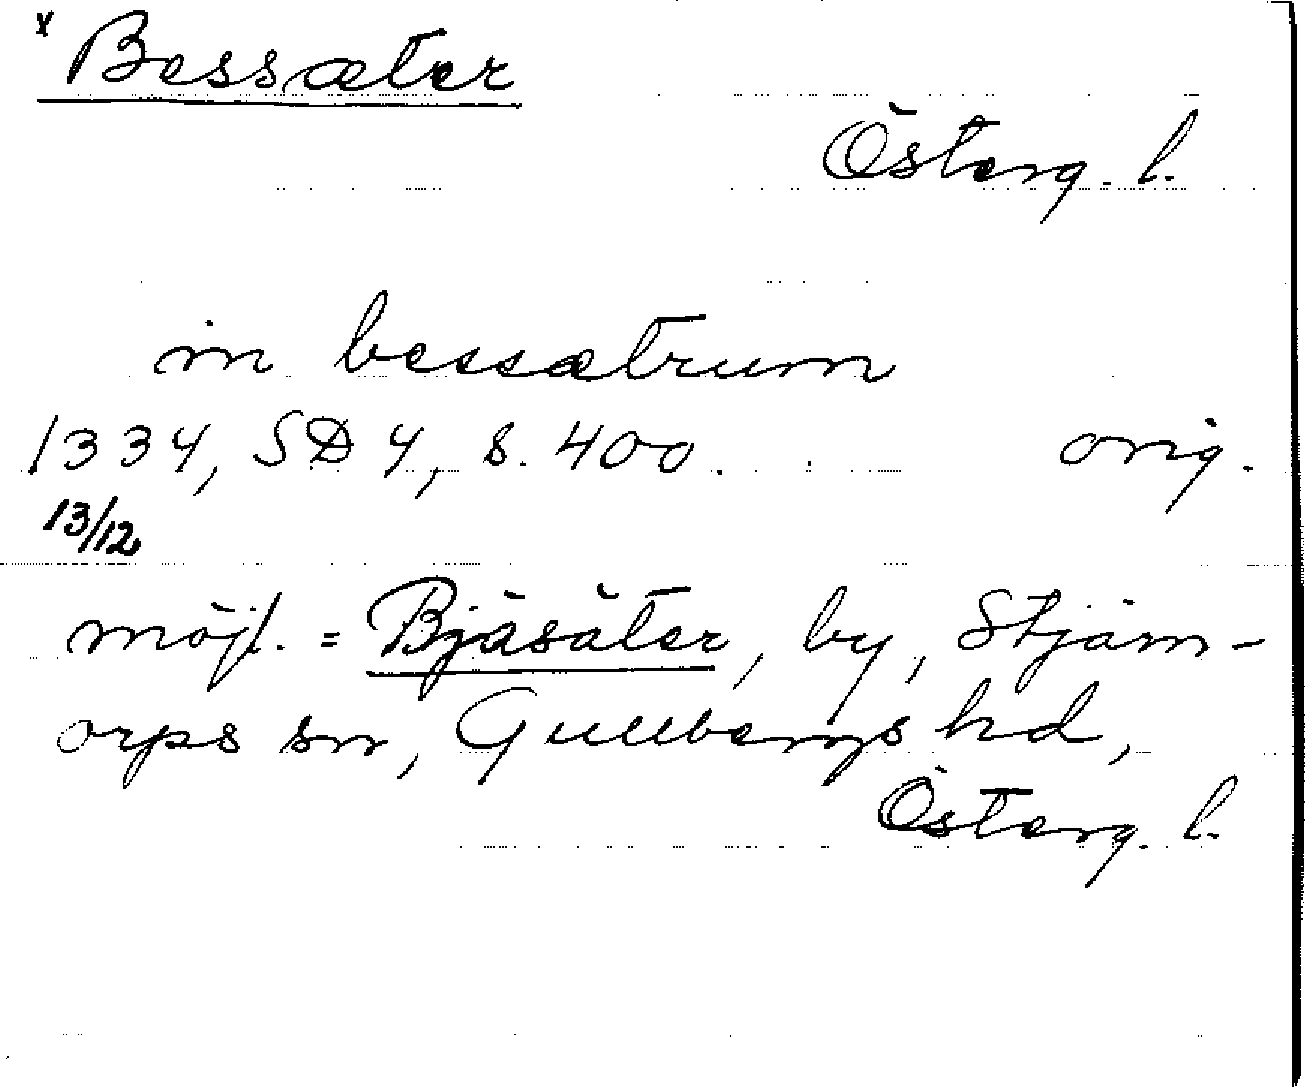 x Bessæter
Österg. l.
in bessætrum
1334, SD 4, s. 400. orig.
13/12
möjl. = Bjäsäter, by, Stjärn-
orps sn, Gullbergs hd,
Österg. l.